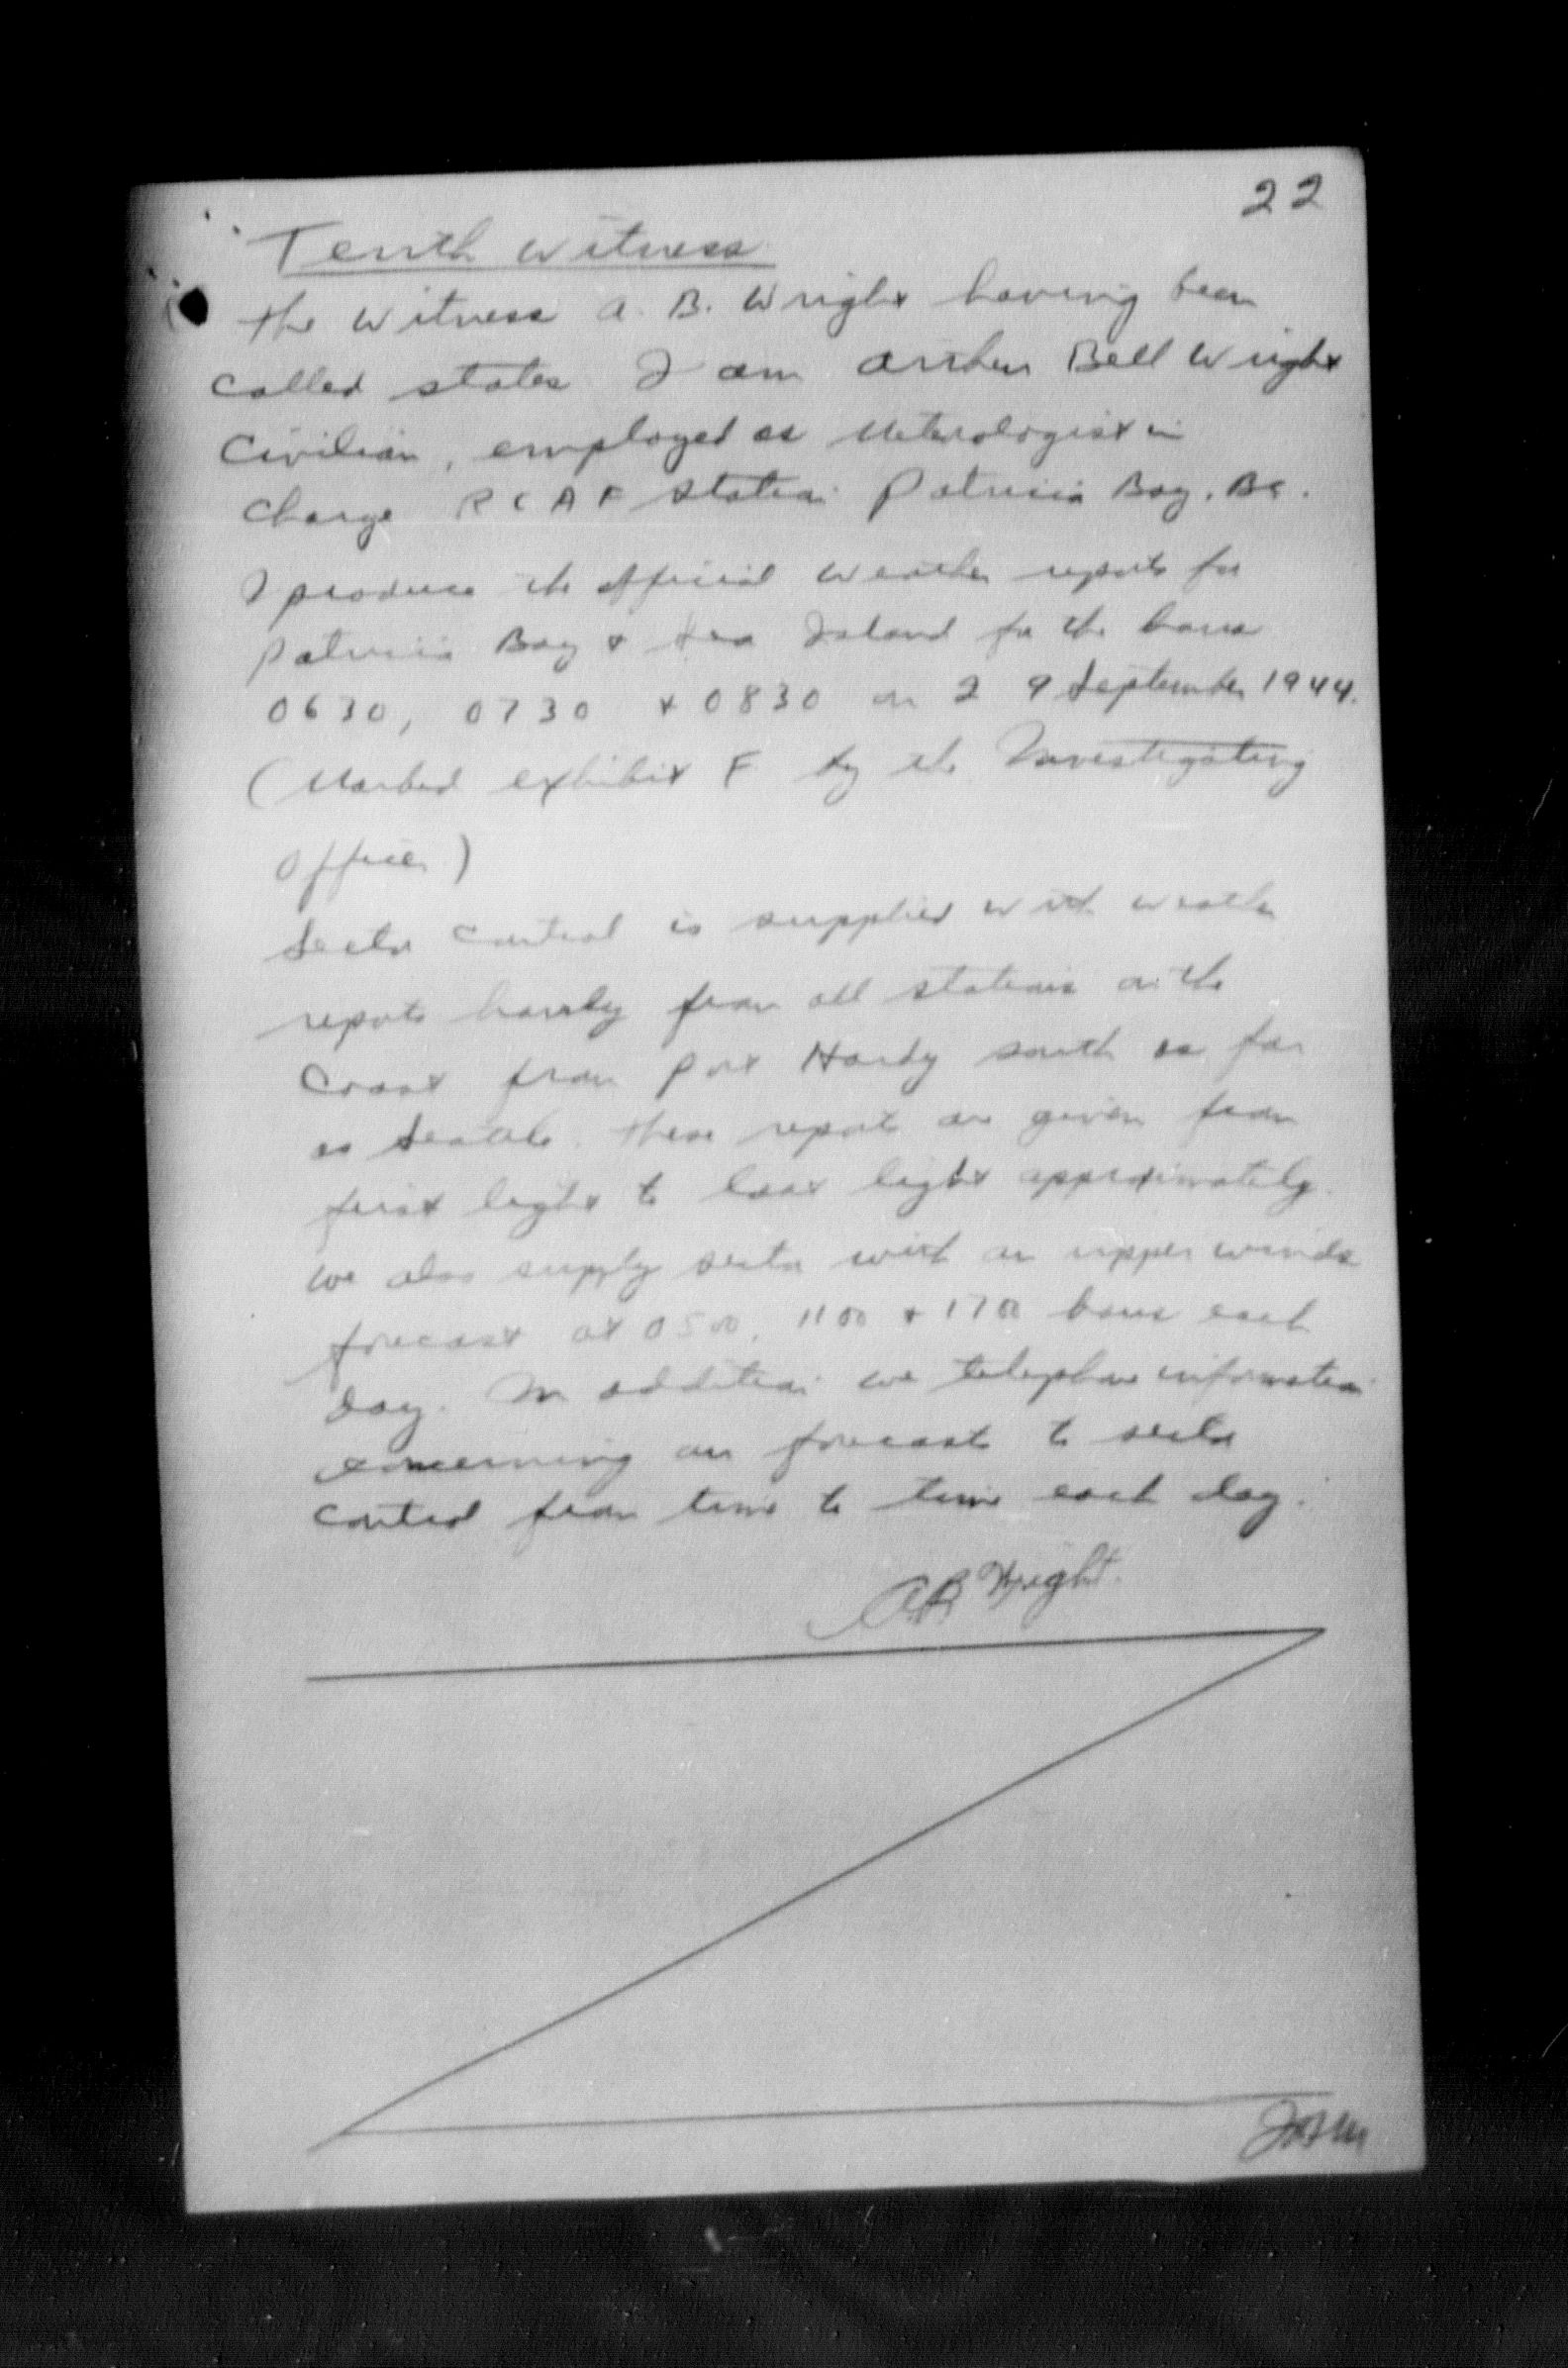 22
Tenth Witness
The Witness A. B. Wright having been
called states I am Arthur Bell Wright
Civilian, employed as Meterologist in
charge R C A F Station Patricia Bay, BC.
I produce the official weather reports for
Patricia Bay & Sea Island for the hours
0630, 0730 & 0830 on 29 September 1944.
(Marked exhibit F by the Investigating
Officer)
Sector Control is supplied with weather
reports hourly from all stations on the
Coast from Port Hardy south as far
as Seattle. These reports are given from
first light to last light approximately.
We also supply sector with an upper winds
forecast at 0500, 1100 & 1700 hours each
day. In addition we telephone information
concerning our forecasts to sector
control from time to time each day.
AB Wright.